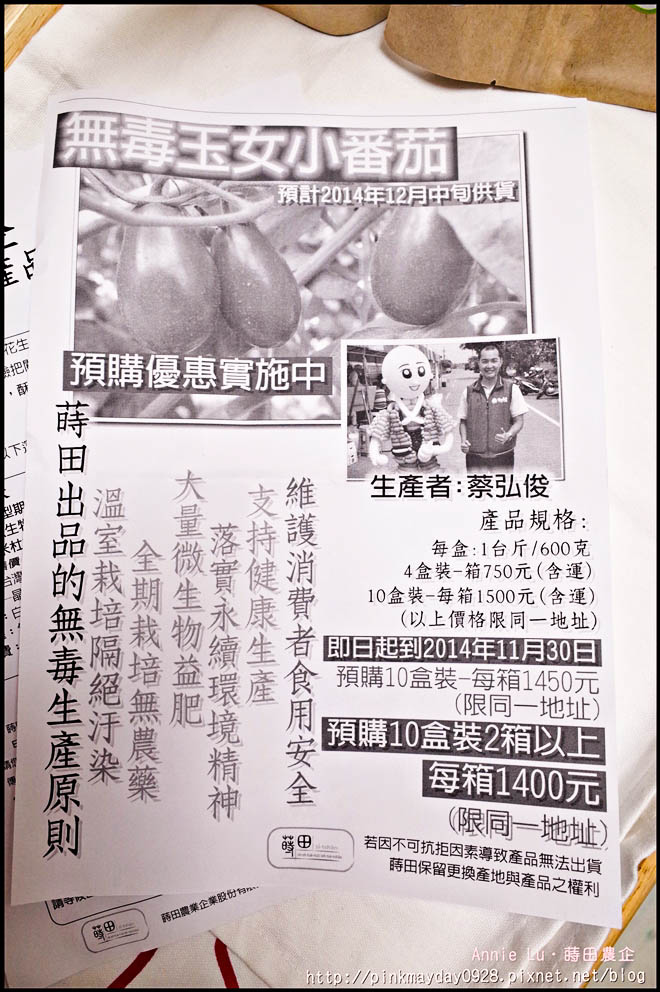 無毒玉女小番茄
預計2014年12月中旬供貨
預購優惠實施中
生產者:蔡弘俊
產品規格:
每盒:1台斤/600克
4盒裝-箱750元(含運)
10盒裝-每箱1500元(含運)
(以上價格限同一地址)
即日起到2014年11月30日
預購10盒裝-每箱1450元
(限同一地址)
預購10盒裝2箱以上
每箱1400元
(限同一地址)
若因不可抗拒因素導致產品無法出貨
蒔田保留更換產地與產品之權利
維護消費者食用安全
支持健康生產
落實永續環境精神
大量微生物益肥
全期栽培無農藥
溫室栽培隔絕汙染
蒔田出品的無毒生產原則
蒔田
產品
花生
以下
蒔田
蒔田農業企業股份有限
Annie Lu·蒔田農企
http://pinkmayday0928.pixnet.net/blog